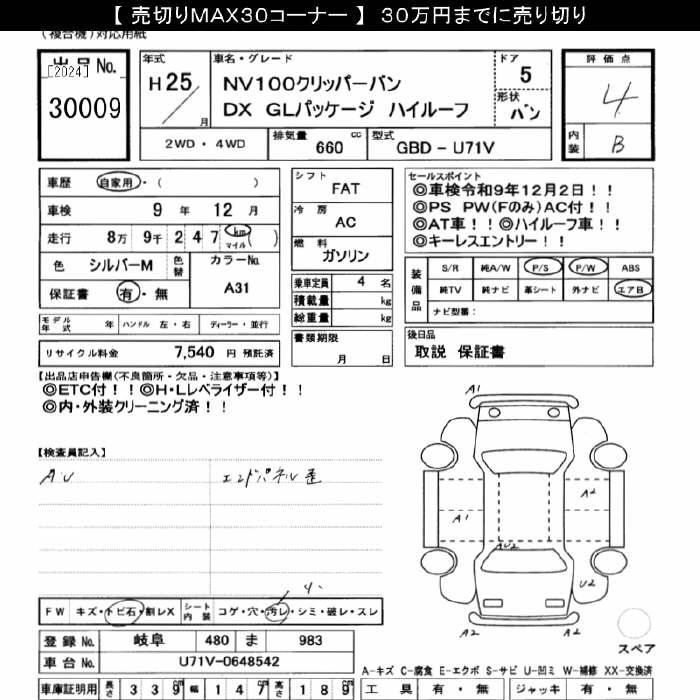 【 売切りMAX30コーナー 】 30万円までに売り切り
(複合機)対応用紙
出品No. [2024] 30009
年式 H25/月
車名・グレード
NV100クリッパーバン
DX GLパッケージ ハイルーフ
ドア 5
形状 バン
評価点 4
内装 B
2WD・4WD 排気量 660 cc 型式 GBD - U71V
車歴 自家用・( )
車検 9年 12月
走行 8万 9千 2 4 7 km マイル ( )
色 シルバーM 色替 カラーNo. A31
保証書 有・無
シフト FAT
冷房 AC
燃料 ガソリン
乗車定員 4 名
積載量 kg
総重量 kg
書類期限
月 日
セールスポイント
◎車検令和9年12月2日!!
◎PS PW(Fのみ)AC付!!
◎AT車!!◎ハイルーフ車!!
◎キーレスエントリー!!
装備品 S/R 純A/W P/S P/W ABS
純TV 純ナビ 革シート 外ナビ エアB
ナビ型番:
モデル年式 年 ハンドル 左・右 ディーラー・並行
リサイクル料金 7,540 円 預託済
後日品
取説 保証書
【出品店申告欄(不良箇所・欠品・注意事項等)】
◎ETC付!!◎H・Lレベライザー付!!
◎内・外装クリーニング済!!
【検査員記入】
AU エンドパネル歪
A1
A2
A1
A2
AU2
U2
A2 A2
スペア
FW キズ・トビ石・割レX シート内装 コゲ・穴・汚レ・シミ・破レ・スレ
登録No. 岐阜 480 ま 983
車台No. U71V-0648542
A-キズ C-腐食 E-エクボ S-サビ U-凹ミ W-補修 XX-交換済
車庫証明用 長さ 3 3 9 cm 幅 1 4 7 cm 高さ 1 8 9 cm 工具 有・無 ジャッキ 有・無